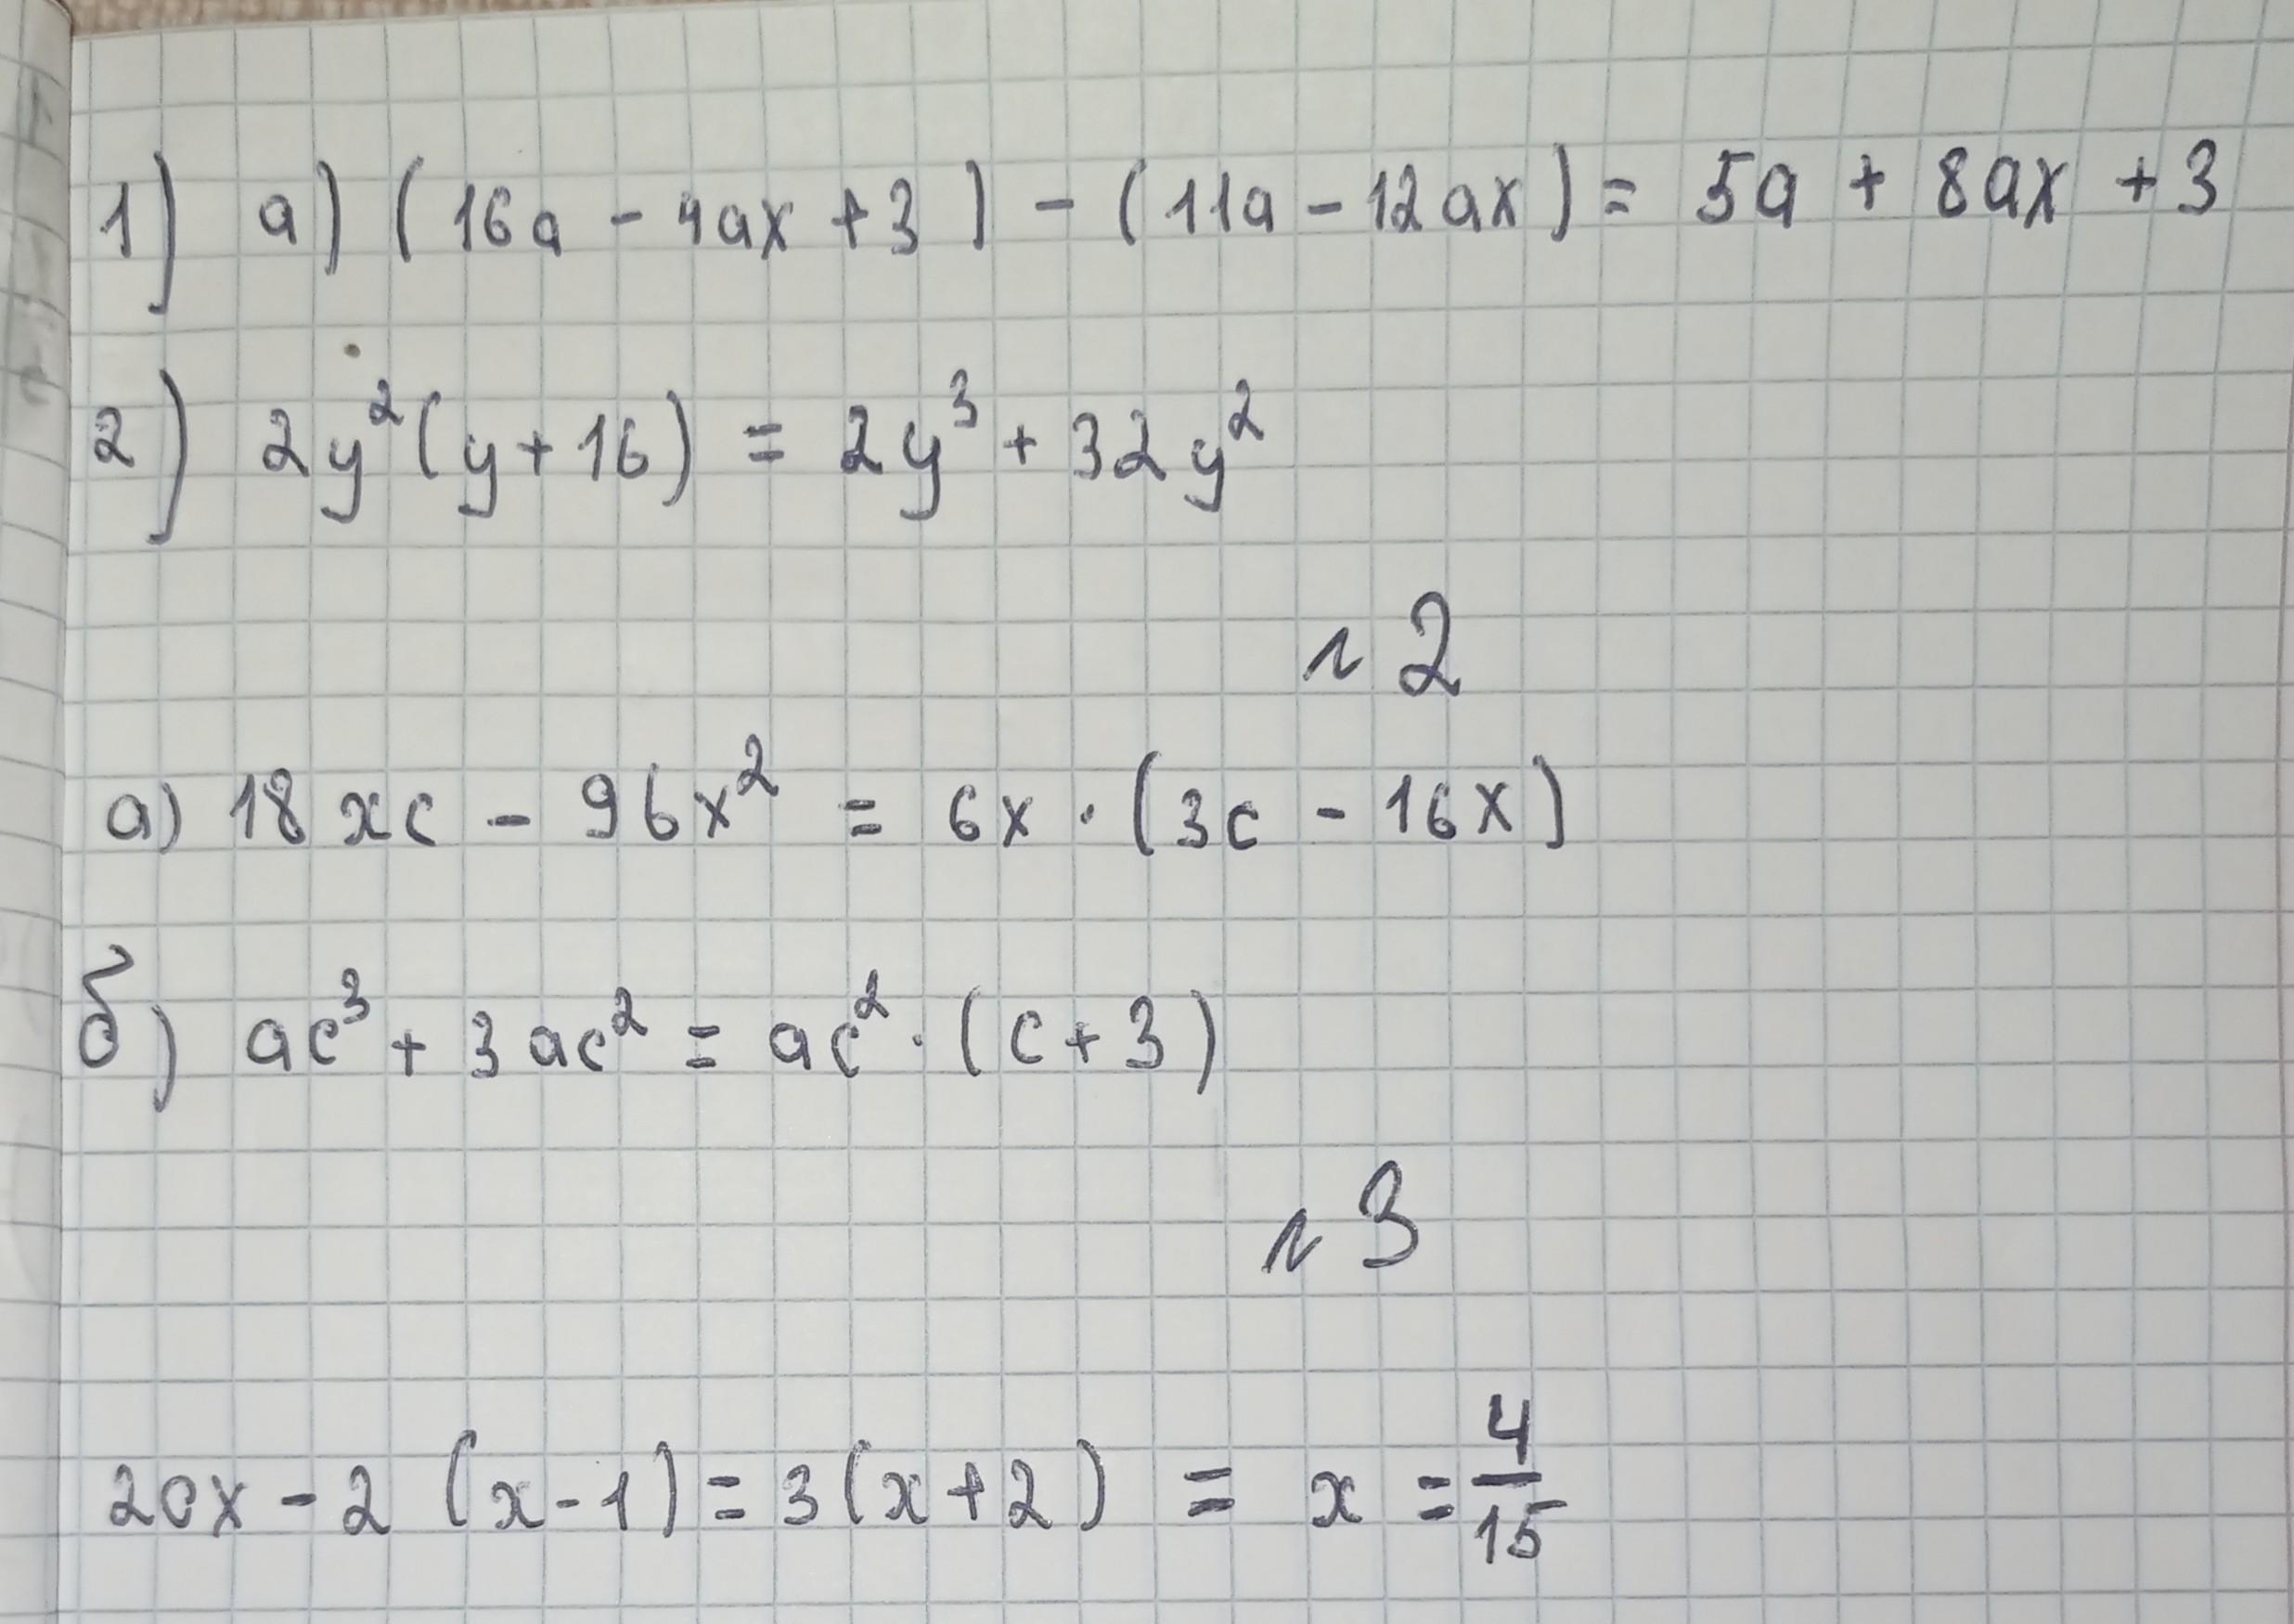 1) а) (16a - 4ax + 3) - (11a - 12ax) = 5a + 8ax + 3
2) 2y²(y + 16) = 2y³ + 32y²
N 2
а) 18xc - 96x² = 6x · (3c - 16x)
б) ac³ + 3ac² = ac² · (c + 3)
N 3
20x - 2 (x - 1) = 3(x + 2) = x = 4/15